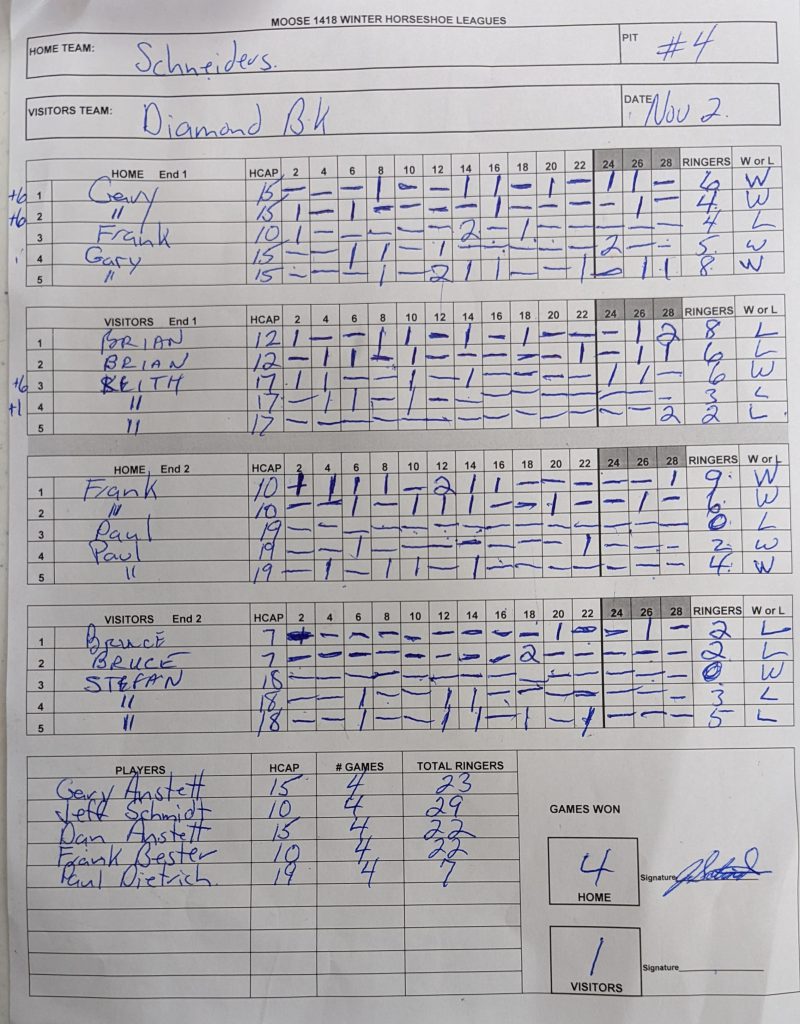 MOOSE 1418 WINTER HORSESHOE LEAGUES
HOME TEAM: Schneiders. PIT #4
VISITORS TEAM: Diamond BK DATE Nov 2.
HOME End 1 HCAP 2 4 6 8 10 12 14 16 18 20 22 24 26 28 RINGERS W or L
+6 1 Gary 15 - - - 1 - - 1 1 - 1 - 1 1 - 6 W
+6 2 " 15 1 - 1 - - - - 1 - - - - 1 - 4 W
3 Frank 10 1 - - - - - 2 - 1 - - - - - 4 L
4 Gary 15 - - 1 1 - 1 - - - - - 2 - - 5 W
5 " 15 - - - 1 - 2 1 1 - - 1 - 1 1 8 W
VISITORS End 1 HCAP 2 4 6 8 10 12 14 16 18 20 22 24 26 28 RINGERS W or L
1 BRIAN 12 1 - - 1 1 - 1 - 1 - - - 1 2 8 L
2 BRIAN 12 - 1 1 - 1 - - - - - 1 - 1 1 6 L
+6 3 KEITH 17 1 1 - - 1 - 1 - - - - 1 1 - 6 W
+1 4 " 17 - 1 1 - 1 - - - - - - - - - 3 L
5 " 17 - - - - - - - - - - - - - 2 2 L
HOME End 2 HCAP 2 4 6 8 10 12 14 16 18 20 22 24 26 28 RINGERS W or L
1 Frank 10 1 1 1 1 - 2 1 1 - - - - - 1 9 W
2 " 10 - - 1 - 1 1 1 - - 1 - - 1 - 6 W
3 Paul 19 - - - - - - - - - - - - - - 0 L
4 Paul 19 - - 1 - - - - - - - 1 - - - 2 W
5 " 19 - 1 - 1 1 - 1 - - - - - - - 4 W
VISITORS End 2 HCAP 2 4 6 8 10 12 14 16 18 20 22 24 26 28 RINGERS W or L
1 BRUCE 7 - - - - - - - - 1 - - 1 - 2 L
2 BRUCE 7 - - - - - - - - 2 - - - - - 2 L
3 STEFAN 18 - - - - - - - - - - - - - - 0 W
4 " 18 - - 1 - - 1 1 - - - - - - - 3 L
5 " 18 - - 1 - - 1 1 - 1 - 1 - - - 5 L
PLAYERS HCAP # GAMES TOTAL RINGERS
Gary Anstett 15 4 23
Jeff Schmidt 10 4 29
Dan Anstett 15 4 22
Frank Bester 10 4 22
Paul Dietrich. 19 4 7
GAMES WON
4 HOME Signature
1 VISITORS Signature